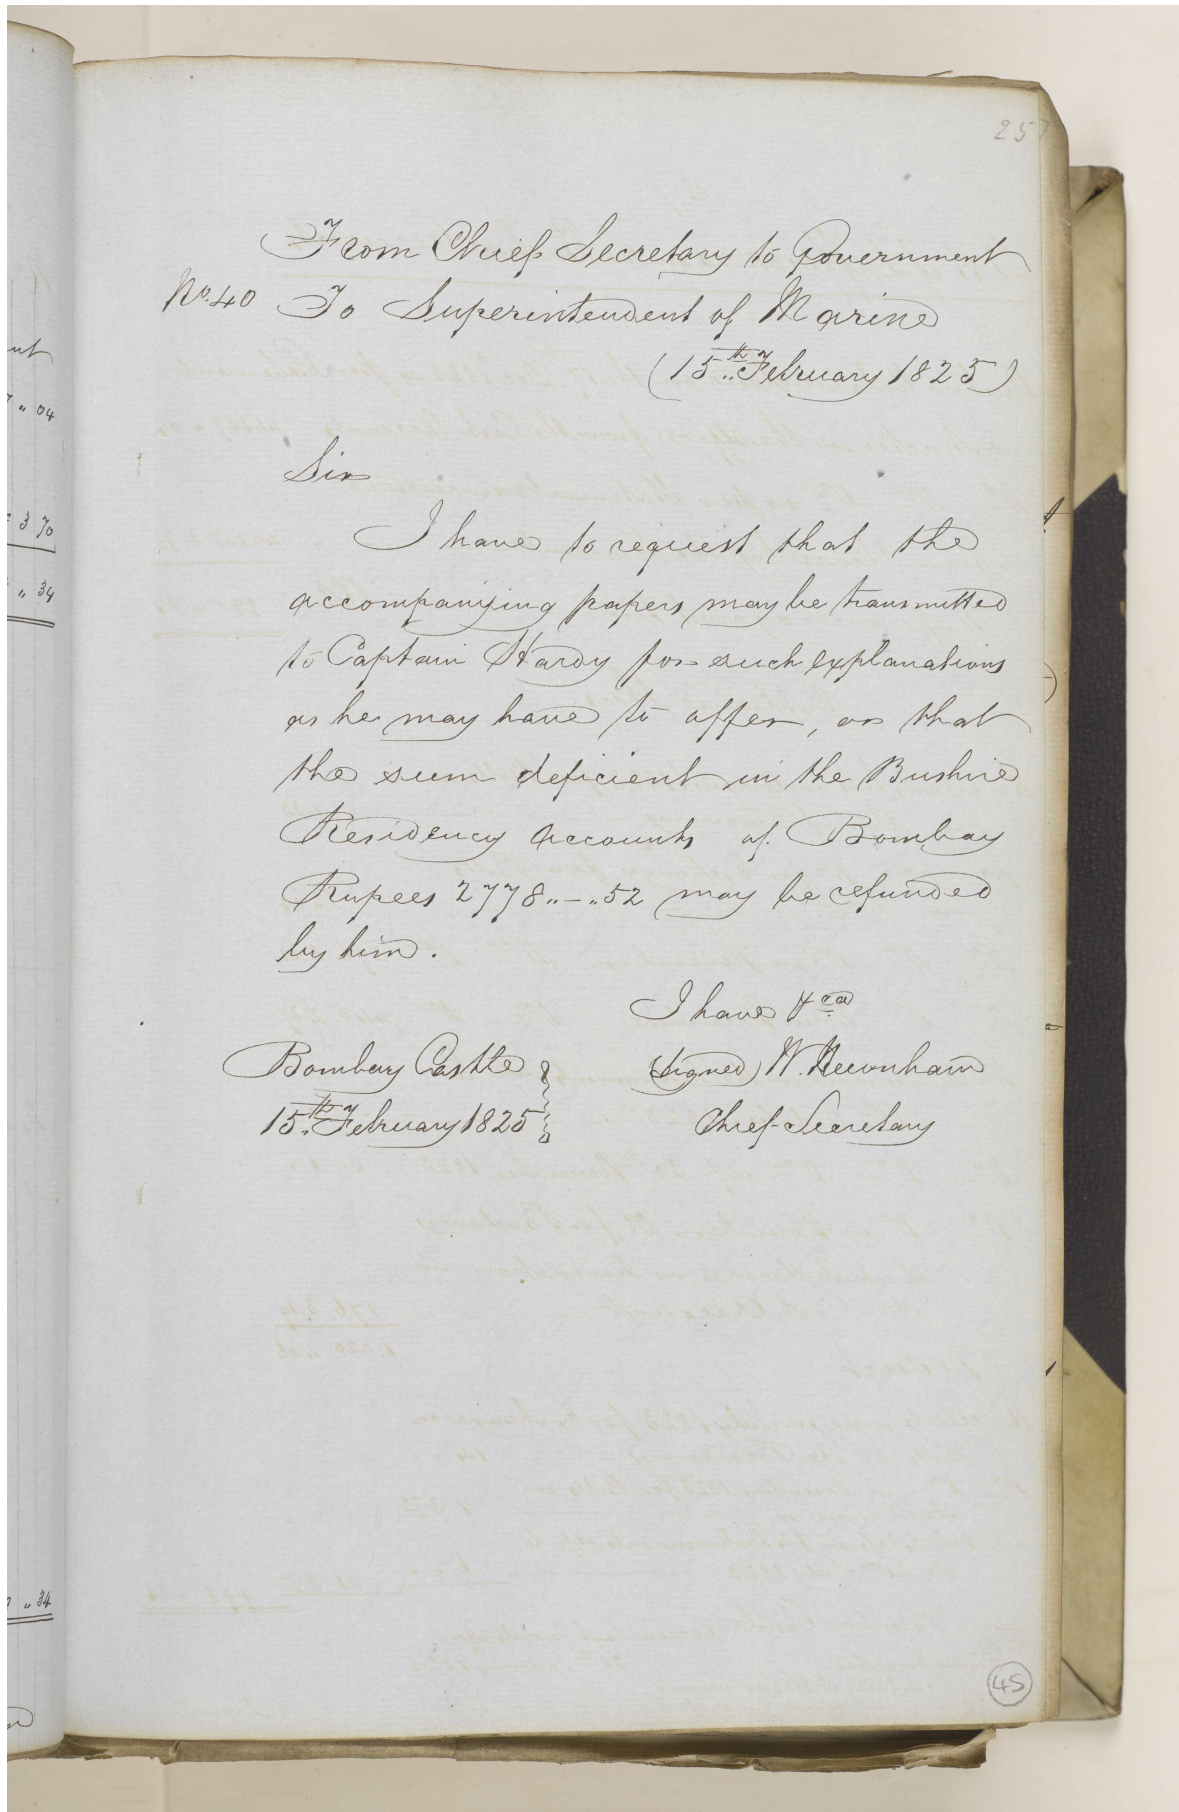 257
From Chief Secretary to Government
No. 40 To Superintendent of Marine
(15th February 1825)
Sir
I have to request that the
accompanying papers may be transmitted
to Captain Hardy for such explanations
as he may have to offer, or that
the sum deficient in the Bushire
Residency accounts of Bombay
Rupees 2778„–„52 may be refunded
by him.
I have &ca
Bombay Castle (signed) W. Newnham
15th February 1825 Chief Secretary
45
nt
„ 04
3 70
„ 34
„ 34